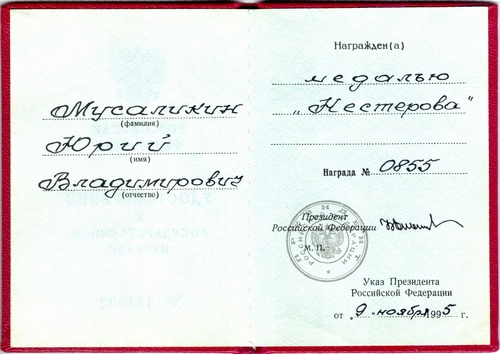 Мусаликин
(фамилия)
Юрий
(имя)
Владимирович
(отчество)
Награжден(а)
медалью
„Нестерова"
Награда № 0855
Президент
Российской Федерации
М. П.
Указ Президента
Российской Федерации
от „9" ноября 1995 г.